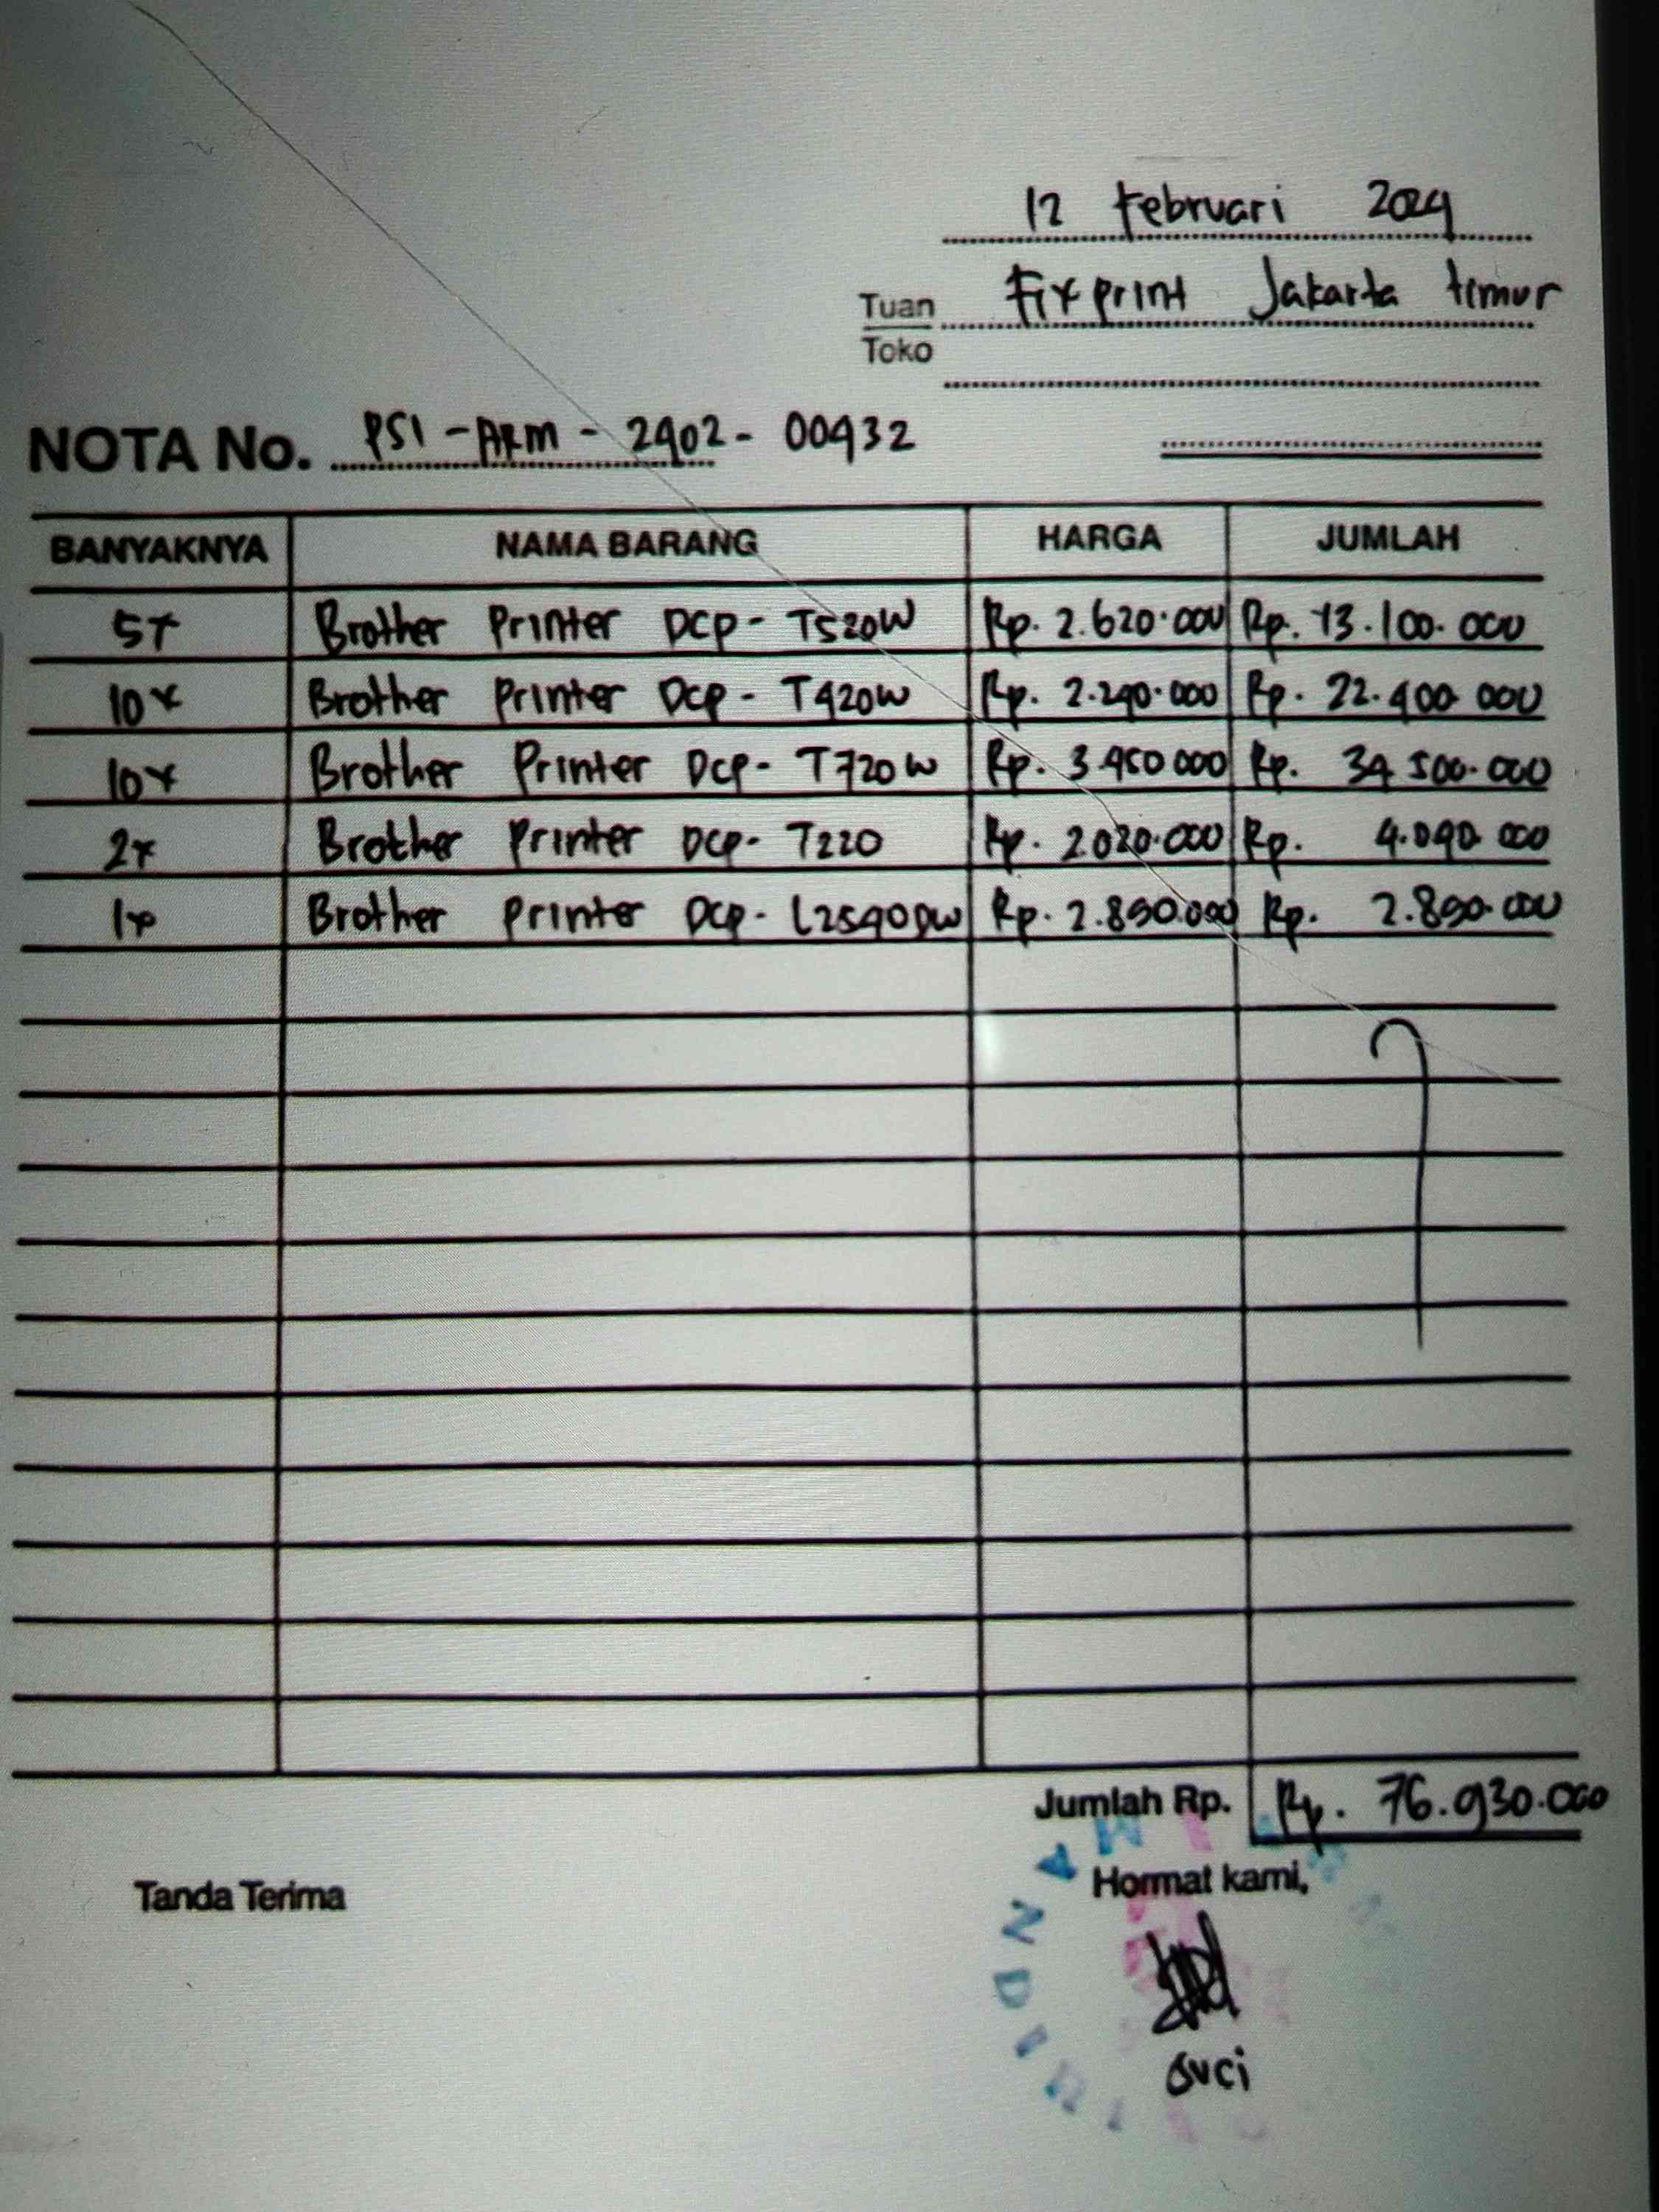 12 Februari 2024
Tuan Fixprint Jakarta timur
Toko
NOTA No. PSI - ARM - 2402 - 00432
BANYAKNYA NAMA BARANG HARGA JUMLAH
5x Brother Printer DCP - T520W Rp. 2.620.000 Rp. 13.100.000
10x Brother Printer DCP - T420W Rp. 2.240.000 Rp. 22.400 000
10x Brother Printer DCP - T720W Rp. 3.450 000 Rp. 34 500.000
2x Brother Printer DCP - T220 Rp. 2.020.000 Rp. 4.040 000
1x Brother Printer DCP - L2540DW Rp. 2.890.000 Rp. 2.890.000
Jumlah Rp. Rp. 76.930.000
Tanda Terima
Hormat kami,
Suci